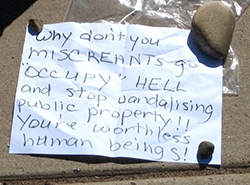 Why don't you
MISCREANTS go
"OCCUPY" HELL
and stop vandalising
public property!!
You're worthless
human beings!